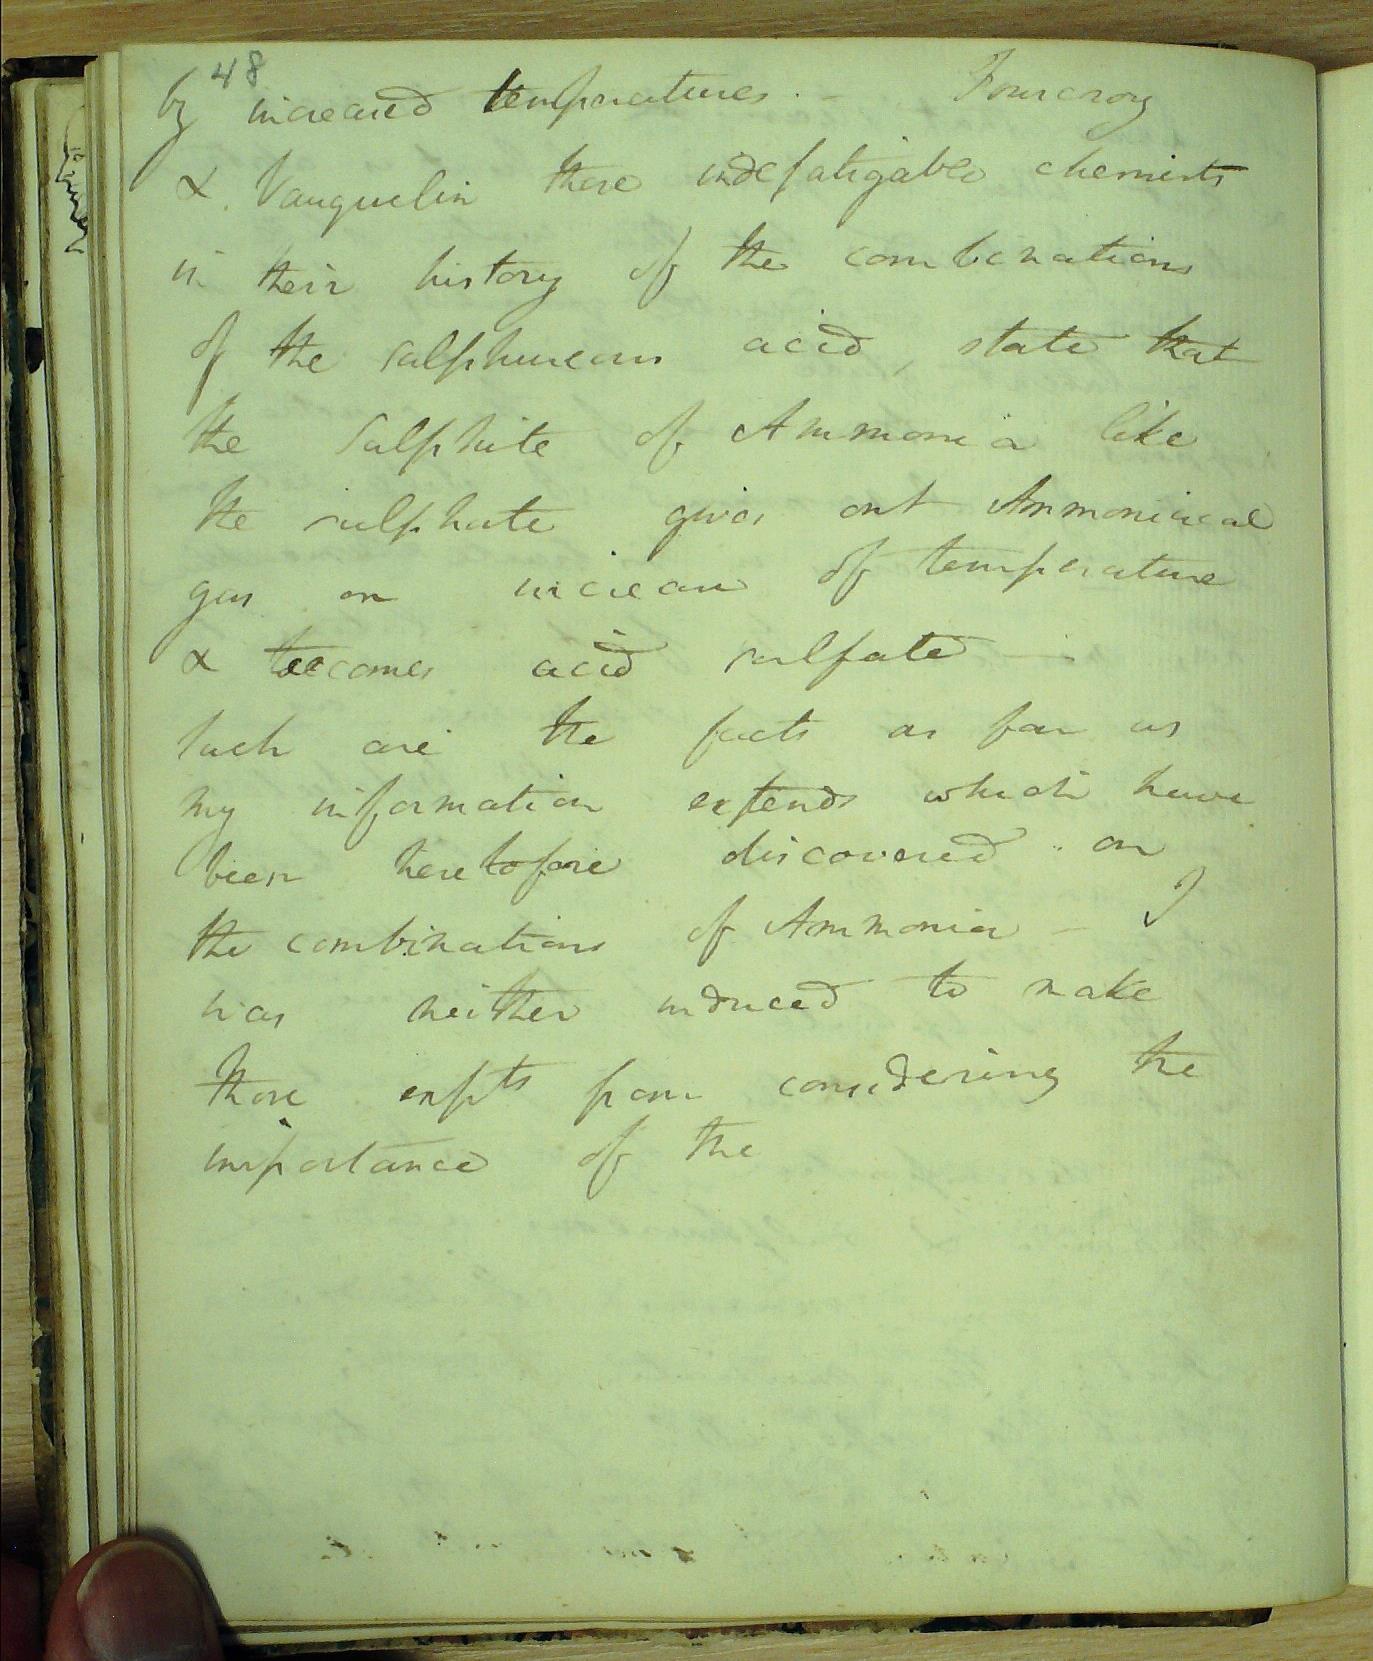 48
by increased temperatures. - Fourcroy
& Vauquelin these indefatigable chemists
in their history of the combinations
of the sulphureous acid, state that
the Sulphite of Ammonia like
the sulphate gives out Ammoniacal
gas on increase of temperature
& becomes acid sulfate —
Such are the facts as far as
my information extends which have
been heretofore discovered on
the combinations of Ammonia - I
was neither induced to make
those expts from considering the
importance of the